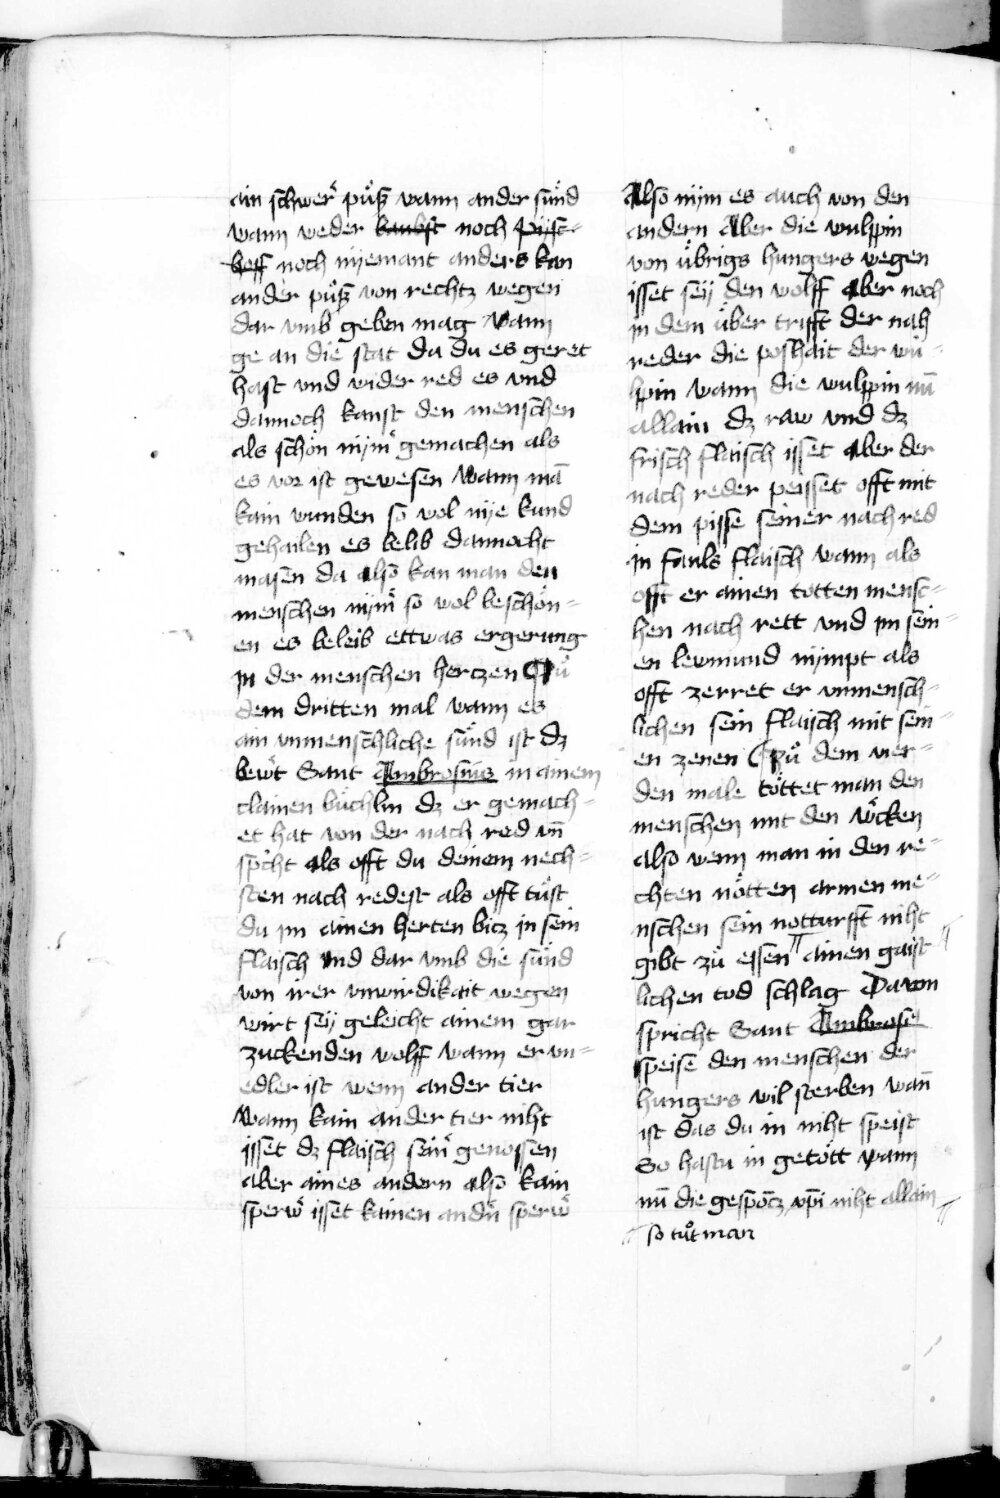 ain schwer̾ půſʒ wann ander sünd
wann weder baubſt noch Pyſc-
heff noch nyemant anders kan
ander půſʒ von rechtz wegen
dar vmb geben mag Wann
ge an die stat da du es geret
haſt vnd wider red es vnd
dannoch kanſt den menschen
als schön nym̄ gemachen als
es vor iſt gewesen Wann mā
kain wunden so wol nye kund
gehailen es belib dannocht
masen da also kan man den
menschen nym̄ so wol beschön-
en es beleib ettwas ergerung
in der menschen hertzen Zů
dem dritten mal wann es
ain vnmenschliche sünd iſt dz
bewẽt Sant Ambrosius in ainem
clainen büchlin dz er gemach-
et hat von der nach red vn̄
sp̃cht als offt du deinem nech-
sten nach redeſt als offt tůſt
du im ainen herten bitz in sein
flaisch Vnd dar vmb die sünd
von irer vnwirdikait wegen
wirt sey geleicht ainem gar
zuckenden wolff wann er vn-
edler iſt wenn ander tier
Wann kain ander tier niht
isset dz flaisch sein̄ genossen
aber aines andern also kain
sperw̃ isset kainen andn̄ sperw̃
Also nym es auch von den
andern Aber die wulppin
von übrigs hungers wegen
isset sey den wolff aber noch
in dem über trifft der nah
reder die poshait der wu-
lpin wann die wulppin nū
allain dz raw vnd dz
frisch flaisch isset aber der
nach reder peisset offt mit
dem pisse seiner nach red
in fauls flaisch wann als
offt er ainen totten mensc-
hen nach rett vnd im sein-
en lewmund nympt als
offt zerret er vnmensch-
lichen sein flaisch mit sein-
en zenen Zů dem vier-
den male töttet man den
menschen mit den wöcken
also wenn man in den re-
chten nötten armen me-
nschen sein notturfft niht
gibt zů essen ainen gaiſt
lichen tod schlag Davon
spricht Sant Ambrose
speise den menschen der
hungers wil sterben wan̄
iſt das du in niht speiſt
So haſtu in getött wann
nū die gesp̃ötz vp̃i niht allain
so tůt man